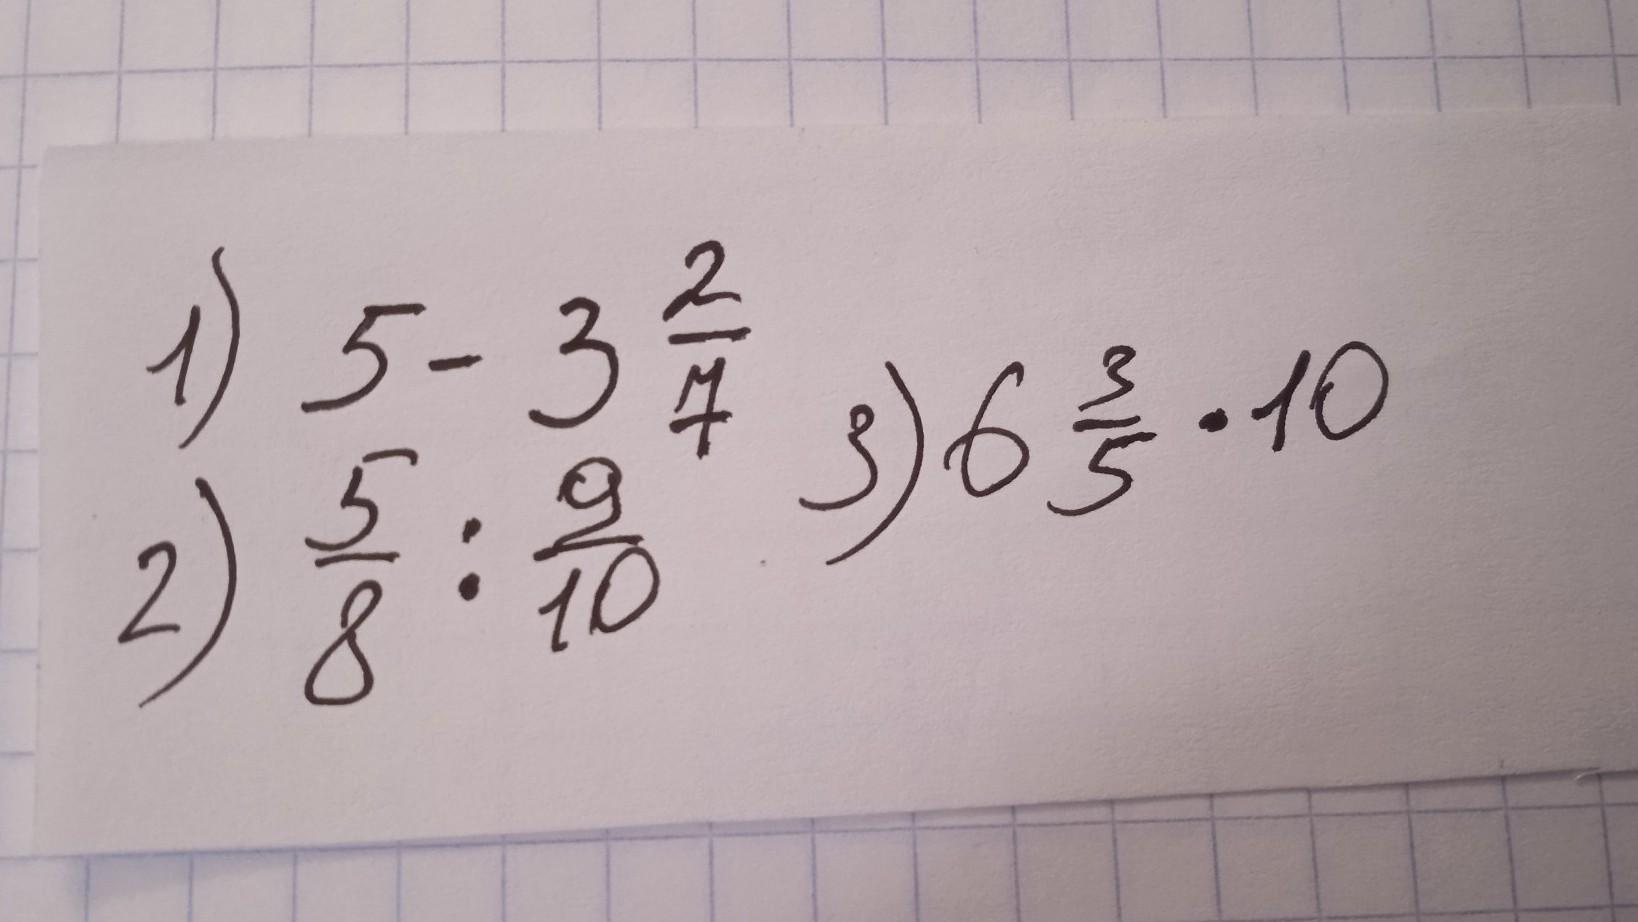 1) 5 - 3 2/7
2) 5/8 : 9/10
3) 6 3/5 · 10